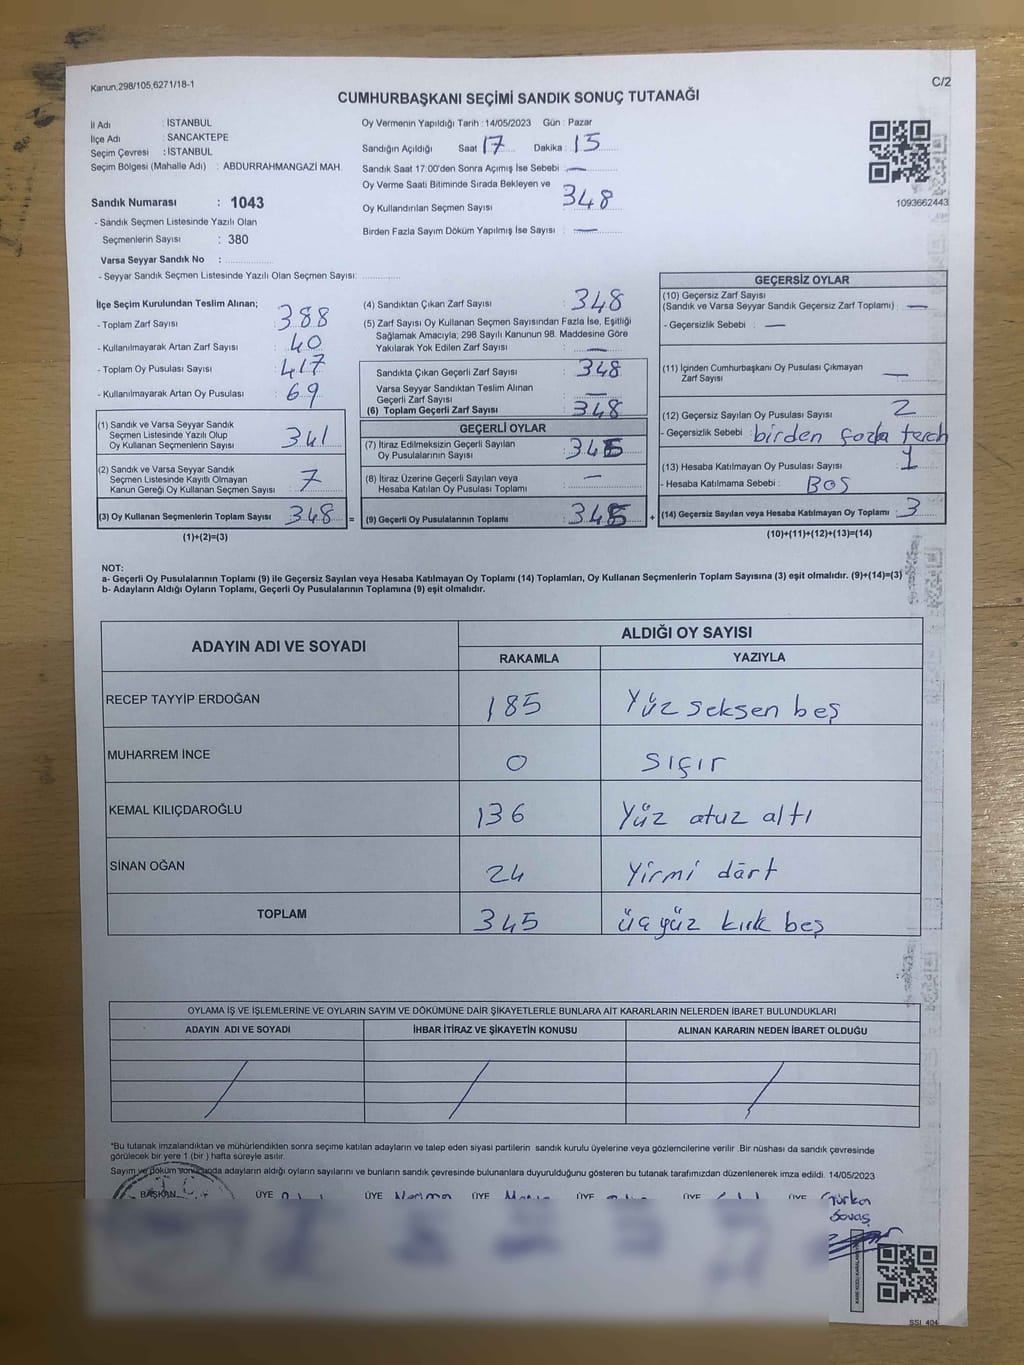 Kanun,298/105,6271/18-1
C/2
CUMHURBAŞKANI SEÇİMİ SANDIK SONUÇ TUTANAĞI
İl Adı : İSTANBUL
İlçe Adı : SANCAKTEPE
Seçim Çevresi : İSTANBUL
Seçim Bölgesi (Mahalle Adı) : ABDURRAHMANGAZİ MAH.
Sandık Numarası : 1043
- Sandık Seçmen Listesinde Yazılı Olan
Seçmenlerin Sayısı : 380
Varsa Seyyar Sandık No :
- Seyyar Sandık Seçmen Listesinde Yazılı Olan Seçmen Sayısı:
Oy Vermenin Yapıldığı Tarih : 14/05/2023 Gün : Pazar
Sandığın Açıldığı Saat 17 Dakika : 15
Sandık Saat 17:00'den Sonra Açımış İse Sebebi : —
Oy Verme Saati Bitiminde Sırada Bekleyen ve
Oy Kullandırılan Seçmen Sayısı : 348
Birden Fazla Sayım Döküm Yapılmış İse Sayısı : —
1093662443
İlçe Seçim Kurulundan Teslim Alınan;
- Toplam Zarf Sayısı : 388
- Kullanılmayarak Artan Zarf Sayısı : 40
- Toplam Oy Pusulası Sayısı : 417
- Kullanılmayarak Artan Oy Pusulası : 69
(1) Sandık ve Varsa Seyyar Sandık
Seçmen Listesinde Yazılı Olup
Oy Kullanan Seçmenlerin Sayısı : 341
(2) Sandık ve Varsa Seyyar Sandık
Seçmen Listesinde Kayıtlı Olmayan
Kanun Gereği Oy Kullanan Seçmen Sayısı : 7
(3) Oy Kullanan Seçmenlerin Toplam Sayısı : 348 =
(1)+(2)=(3)
(4) Sandıktan Çıkan Zarf Sayısı : 348
(5) Zarf Sayısı Oy Kullanan Seçmen Sayısından Fazla İse, Eşitliği
Sağlamak Amacıyla; 298 Sayılı Kanunun 98. Maddesine Göre
Yakılarak Yok Edilen Zarf Sayısı : —
Sandıkta Çıkan Geçerli Zarf Sayısı : 348
Varsa Seyyar Sandıktan Teslim Alınan
Geçerli Zarf Sayısı : —
(6) Toplam Geçerli Zarf Sayısı : 348
GEÇERLİ OYLAR
(7) İtiraz Edilmeksizin Geçerli Sayılan
Oy Pusulalarının Sayısı : 345
(8) İtiraz Üzerine Geçerli Sayılan veya
Hesaba Katılan Oy Pusulası Toplamı : —
(9) Geçerli Oy Pusulalarının Toplamı : 345 +
GEÇERSİZ OYLAR
(10) Geçersiz Zarf Sayısı
(Sandık ve Varsa Seyyar Sandık Geçersiz Zarf Toplamı) : —
- Geçersizlik Sebebi : —
(11) İçinden Cumhurbaşkanı Oy Pusulası Çıkmayan
Zarf Sayısı : —
(12) Geçersiz Sayılan Oy Pusulası Sayısı : 2
- Geçersizlik Sebebi : birden fazla terch
(13) Hesaba Katılmayan Oy Pusulası Sayısı : 1
- Hesaba Katılmama Sebebi : BOŞ
(14) Geçersiz Sayılan veya Hesaba Katılmayan Oy Toplamı : 3
(10)+(11)+(12)+(13)=(14)
NOT:
a- Geçerli Oy Pusulalarının Toplamı (9) ile Geçersiz Sayılan veya Hesaba Katılmayan Oy Toplamı (14) Toplamları, Oy Kullanan Seçmenlerin Toplam Sayısına (3) eşit olmalıdır. (9)+(14)=(3)
b- Adayların Aldığı Oyların Toplamı, Geçerli Oy Pusulalarının Toplamına (9) eşit olmalıdır.
ADAYIN ADI VE SOYADI ALDIĞI OY SAYISI
RAKAMLA YAZIYLA
RECEP TAYYİP ERDOĞAN 185 Yüz seksen beş
MUHARREM İNCE 0 sıfır
KEMAL KILIÇDAROĞLU 136 Yüz otuz altı
SİNAN OĞAN 24 Yirmi dört
TOPLAM 345 üçyüz kırk beş
OYLAMA İŞ VE İŞLEMLERİNE VE OYLARIN SAYIM VE DÖKÜMÜNE DAİR ŞİKAYETLERLE BUNLARA AİT KARARLARIN NELERDEN İBARET BULUNDUKLARI
ADAYIN ADI VE SOYADI İHBAR İTİRAZ VE ŞİKAYETİN KONUSU ALINAN KARARIN NEDEN İBARET OLDUĞU
*Bu tutanak imzalandıktan ve mühürlendikten sonra seçime katılan adayların ve talep eden siyasi partilerin sandık kurulu üyelerine veya gözlemcilerine verilir .Bir nüshası da sandık çevresinde
görülecek bir yere 1 (bir ) hafta süreyle asılır.
Sayım ve döküm sonucunda adayların aldığı oyların sayılarını ve bunların sandık çevresinde bulunanlara duyurulduğunu gösteren bu tutanak tarafımızdan düzenlenerek imza edildi. 14/05/2023
BAŞKAN ÜYE ÜYE ÜYE ÜYE ÜYE ÜYE Gürkan
Savaş
SSI_404